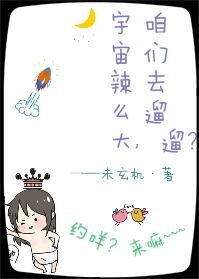 宇宙辣么大,
咱们去遛遛?
——未玄机·著
约咩? 来嘛~~~